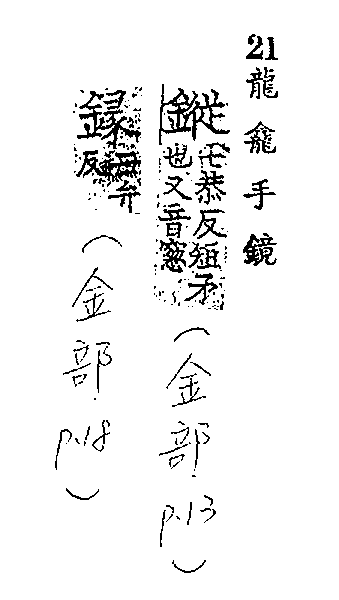 21龍龕手鏡
鏦七恭反短矛也又音窓(金部p.13)
反(金部p.18)